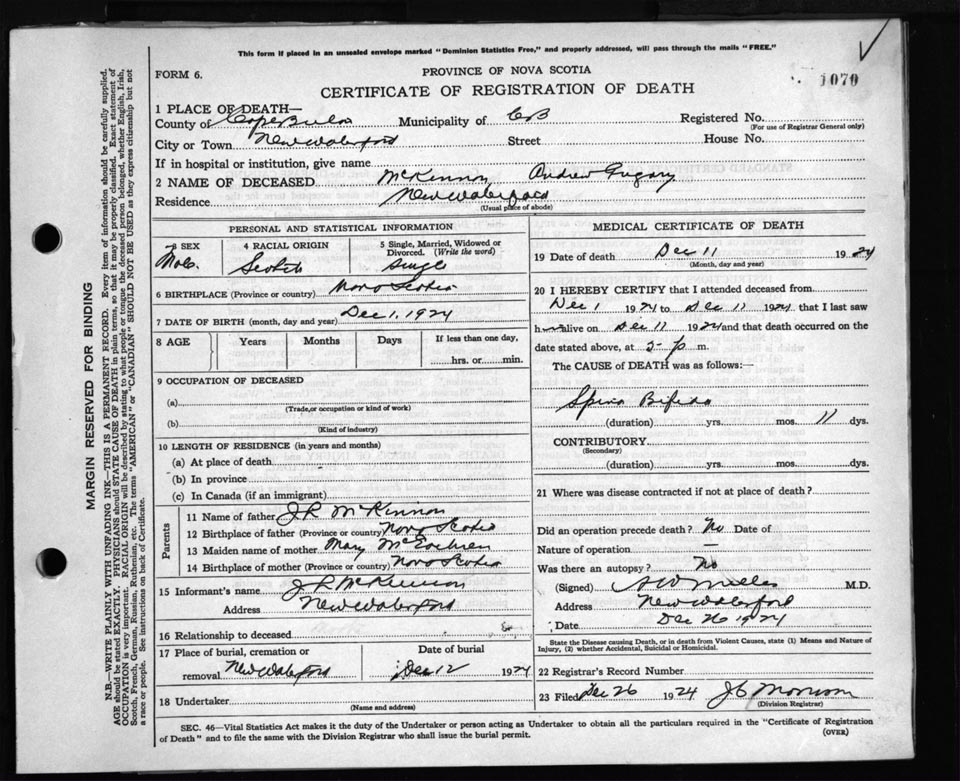 This form if placed in an unsealed envelope marked "Dominion Statistics Free," and properly addressed, will pass through the mails "FREE."
FORM 6.
PROVINCE OF NOVA SCOTIA
1070
CERTIFICATE OF REGISTRATION OF DEATH
1 PLACE OF DEATH—
County of Cape Breton Municipality of CB Registered No.
(For use of Registrar General only)
City or Town New Waterford Street House No.
If in hospital or institution, give name
2 NAME OF DECEASED McKinnon Andrew Gregory
Residence New Waterford
(Usual place of abode)
PERSONAL AND STATISTICAL INFORMATION
3 SEX 4 RACIAL ORIGIN 5 Single, Married, Widowed or Divorced. (Write the word)
Male Scotch Single
6 BIRTHPLACE (Province or country) Nova Scotia
7 DATE OF BIRTH (month, day and year) Dec 1, 1924
8 AGE Years Months Days If less than one day,
hrs. or min.
9 OCCUPATION OF DECEASED
(a)
(Trade, or occupation or kind of work)
(b)
(Kind of industry)
10 LENGTH OF RESIDENCE (in years and months)
(a) At place of death
(b) In province
(c) In Canada (if an immigrant)
Parents
11 Name of father J.R. McKinnon
12 Birthplace of father (Province or country) Nova Scotia
13 Maiden name of mother Mary McEachren
14 Birthplace of mother (Province or country) Nova Scotia
15 Informant's name J R McKinnon
Address New Waterford
16 Relationship to deceased
17 Place of burial, cremation or removal Date of burial
New Waterford Dec 12 1924
18 Undertaker
(Name and address)
MEDICAL CERTIFICATE OF DEATH
19 Date of death Dec 11 1924
(Month, day and year)
20 I HEREBY CERTIFY that I attended deceased from
Dec 1 1924 to Dec 11 1924 that I last saw
him alive on Dec 11 1924 and that death occurred on
date stated above, at 5- p m.
The CAUSE of DEATH was as follows:—
Spina Bifida
(duration) yrs. mos. 11 dys.
CONTRIBUTORY
(Secondary)
(duration) yrs. mos. dys.
21 Where was disease contracted if not at place of death?
Did an operation precede death? No Date of
Nature of operation —
Was there an autopsy? No
(Signed) Miller M.D.
Address New Waterford
Date Dec 26 1924
State the Disease causing Death, or in death from Violent Causes, state (1) Means and Nature of
Injury, (2) whether Accidental, Suicidal or Homicidal.
22 Registrar's Record Number
23 Filed Dec 26 1924 J C Morrison
(Division Registrar)
SEC. 46—Vital Statistics Act makes it the duty of the Undertaker or person acting as Undertaker to obtain all the particulars required in the "Certificate of Registration
of Death" and to file the same with the Division Registrar who shall issue the burial permit.
(OVER)
MARGIN RESERVED FOR BINDING
N.B.—WRITE PLAINLY WITH UNFADING INK—THIS IS A PERMANENT RECORD. Every item of information should be carefully supplied.
AGE should be stated EXACTLY. PHYSICIANS should STATE CAUSE OF DEATH in plain terms, so that it may be properly classified. Exact statement of
OCCUPATION is very important. RACIAL ORIGIN will be described by stating to what people or tongue the deceased person belonged, whether English, Irish,
Scotch, French, German, Russian, Ruthenian, etc. The terms "AMERICAN" or "CANADIAN" SHOULD NOT BE USED as they express citizenship but not
a race or people. See instructions on back of Certificate.